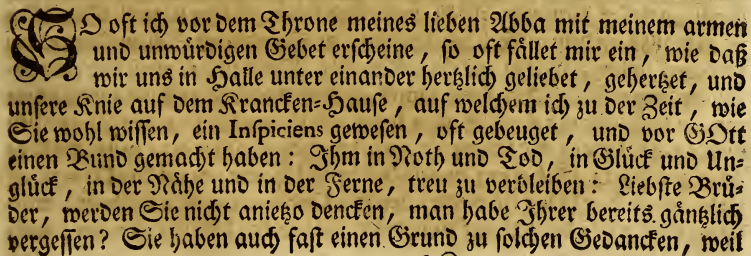 SO oft ich vor dem Throne meines lieben Abba mit meinem armen
und unwürdigen Gebet erscheine, so oft fället mir ein, wie daß
wir uns in Halle unter einander hertzlich geliebet, gehertzet, und
unsere Knie auf dem Krancken-Hause, auf welchem ich zu der Zeit, wie
Sie wohl wissen, ein Inspiciens gewesen, oft gebeuget, und vor GOtt
einen Bund gemacht haben: Ihm in Noth und Tod, in Glück und Un-
glück, in der Nähe und in der Ferne, treu zu verbleiben: Liebste Brü-
der, werden Sie nicht anietzo dencken, man habe Ihrer bereits gäntzlich
vergessen? Sie haben auch fast einen Grund zu solchen Gedancken, weil